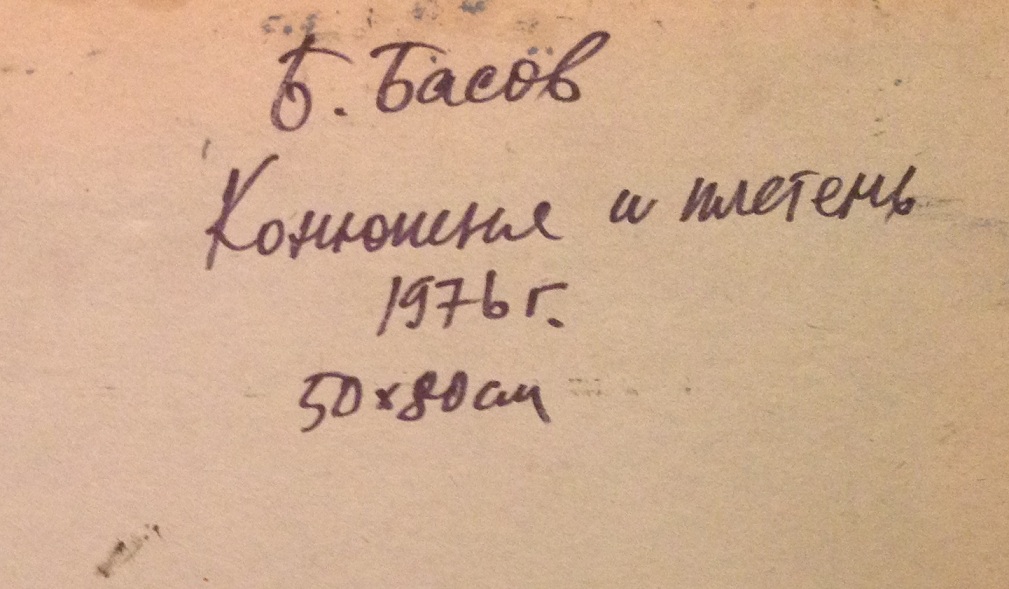 Б. Басов
Конюшня и плетень
1976 г.
50х80см